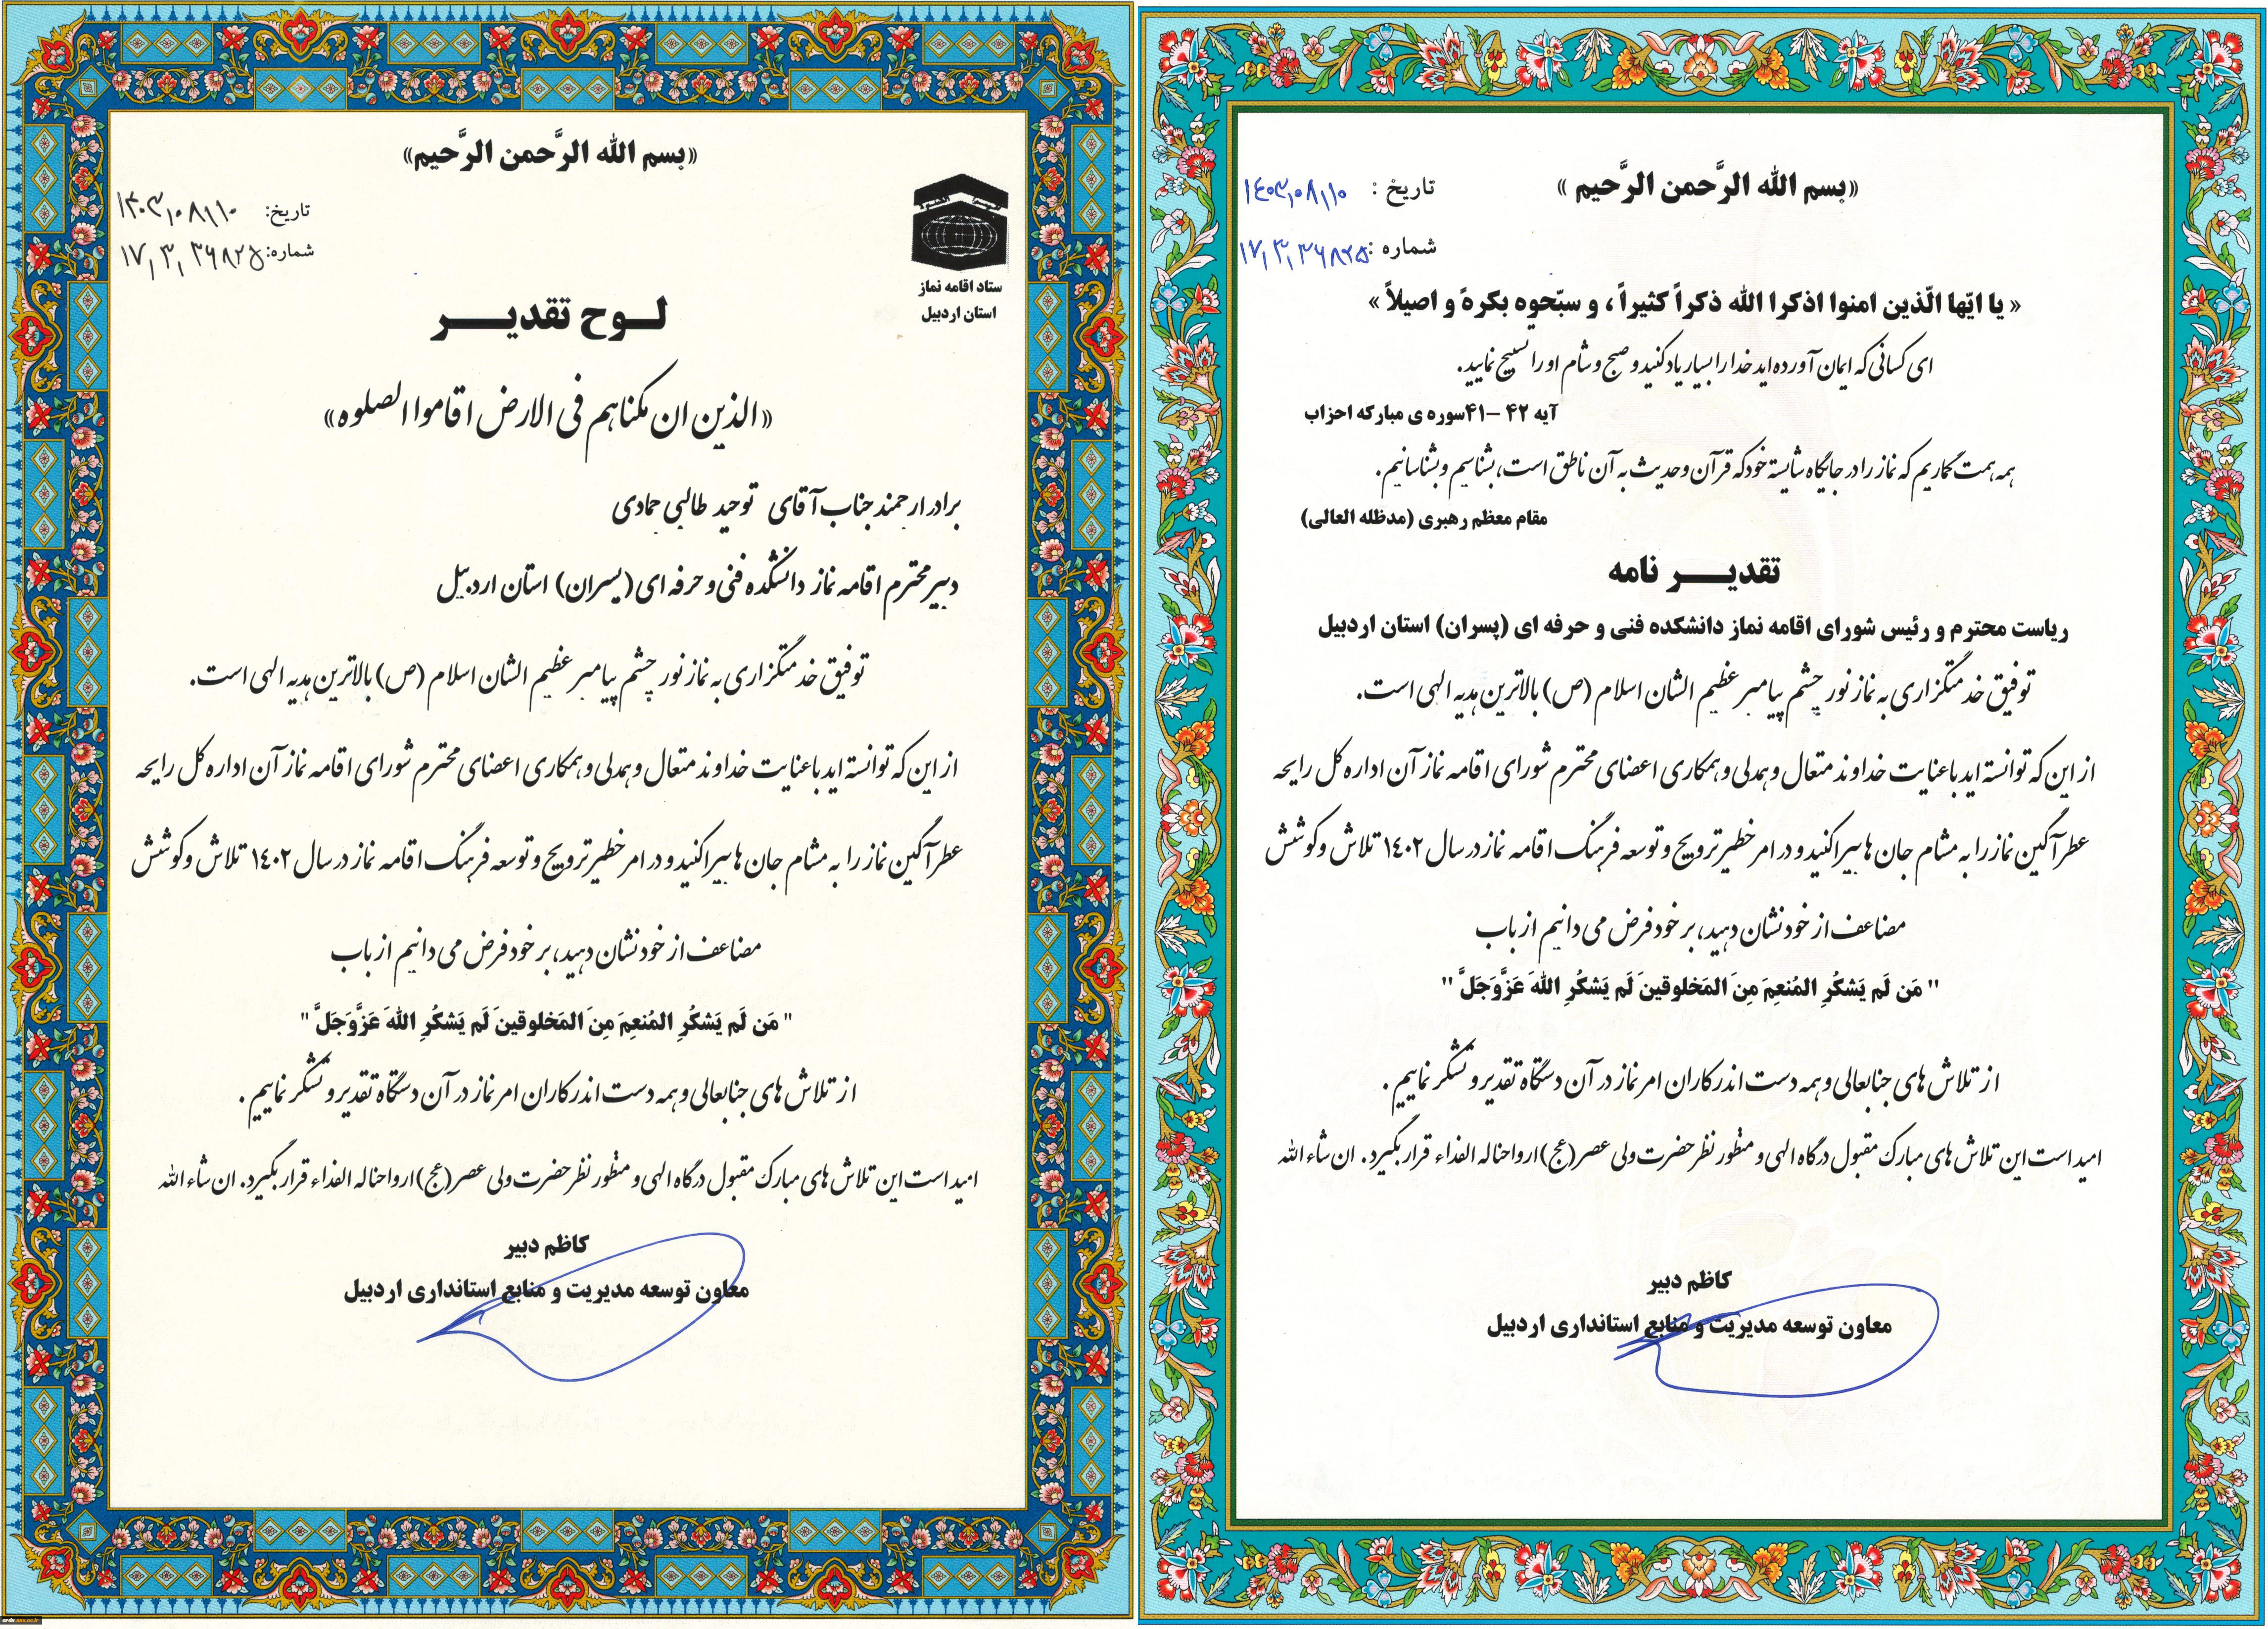 «بسم الله الرَّحمن الرَّحیم»
تاریخ : ۱۴۰۳٫۰۸٫۱۰
شماره : ۱۷٫۳٫۳۶۸۲۵
« یا ایّها الّذین امنوا اذکرا الله ذکراً کثیراً ، و سبّحوه بکرهً و اصیلاً »
ای کسانی که ایمان آورده اید خدا را بسیار یاد کنید و صبح و شام او را تسبیح نمایید.
آیه ۴۲ –۴۱سوره ی مبارکه احزاب
همه همت گماریم که نماز را در جایگاه شایسته خود که قرآن و حدیث به آن ناطق است، بشناسیم و بشناسانیم.
مقام معظم رهبری (مدظله العالی)
تقدیـــر نامه
ریاست محترم و رئیس شورای اقامه نماز دانشکده فنی و حرفه ای (پسران) استان اردبیل
توفیق خدمتگزاری به نماز نور چشم پیامبر عظیم الشان اسلام (ص) بالاترین هدیه الهی است.
از این که توانسته اید با عنایت خداوند متعال و همدلی و همکاری اعضای محترم شورای اقامه نماز آن اداره کل رایحه
عطرآگین نماز را به مشام جان ها بپراکنید و در امر خطیر ترویج و توسعه فرهنگ اقامه نماز در سال ۱۴۰۲ تلاش و کوشش
مضاعف از خود نشان دهید، بر خود فرض می دانیم از باب
" مَن لَم یَشکُرِ المُنعِمَ مِنَ المَخلوقینَ لَم یَشکُرِ اللهَ عَزَّوَجَلَّ "
از تلاش های جنابعالی و همه دست اندرکاران امر نماز در آن دستگاه تقدیر و تشکر نماییم .
امید است این تلاش های مبارک مقبول درگاه الهی و منظور نظر حضرت ولی عصر (عج) ارواحنا له الفداء قرار بگیرد. ان شاء الله
کاظم دبیر
معاون توسعه مدیریت و منابع استانداری اردبیل
«بسم الله الرَّحمن الرَّحیم»
تاریخ: ۱۴۰۳٫۰۸٫۱۰
شماره: ۱۷٫۳٫۳۶۸۲۵
ستاد اقامه نماز
استان اردبیل
لــوح تقدیـــر
«الذین ان مکناهم فی الارض اقاموا الصلوه»
برادر ارجمند جناب آقای توحید طالبی حمادی
دبیر محترم اقامه نماز دانشکده فنی و حرفه ای (پسران) استان اردبیل
توفیق خدمتگزاری به نماز نور چشم پیامبر عظیم الشان اسلام (ص) بالاترین هدیه الهی است.
از این که توانسته اید با عنایت خداوند متعال و همدلی و همکاری اعضای محترم شورای اقامه نماز آن اداره کل رایحه
عطرآگین نماز را به مشام جان ها بپراکنید و در امر خطیر ترویج و توسعه فرهنگ اقامه نماز در سال ۱۴۰۲ تلاش و کوشش
مضاعف از خود نشان دهید، بر خود فرض می دانیم از باب
" مَن لَم یَشکُرِ المُنعِمَ مِنَ المَخلوقینَ لَم یَشکُرِ اللهَ عَزَّوَجَلَّ "
از تلاش های جنابعالی و همه دست اندرکاران امر نماز در آن دستگاه تقدیر و تشکر نماییم .
امید است این تلاش های مبارک مقبول درگاه الهی و منظور نظر حضرت ولی عصر (عج) ارواحنا له الفداء قرار بگیرد. ان شاء الله
کاظم دبیر
معاون توسعه مدیریت و منابع استانداری اردبیل